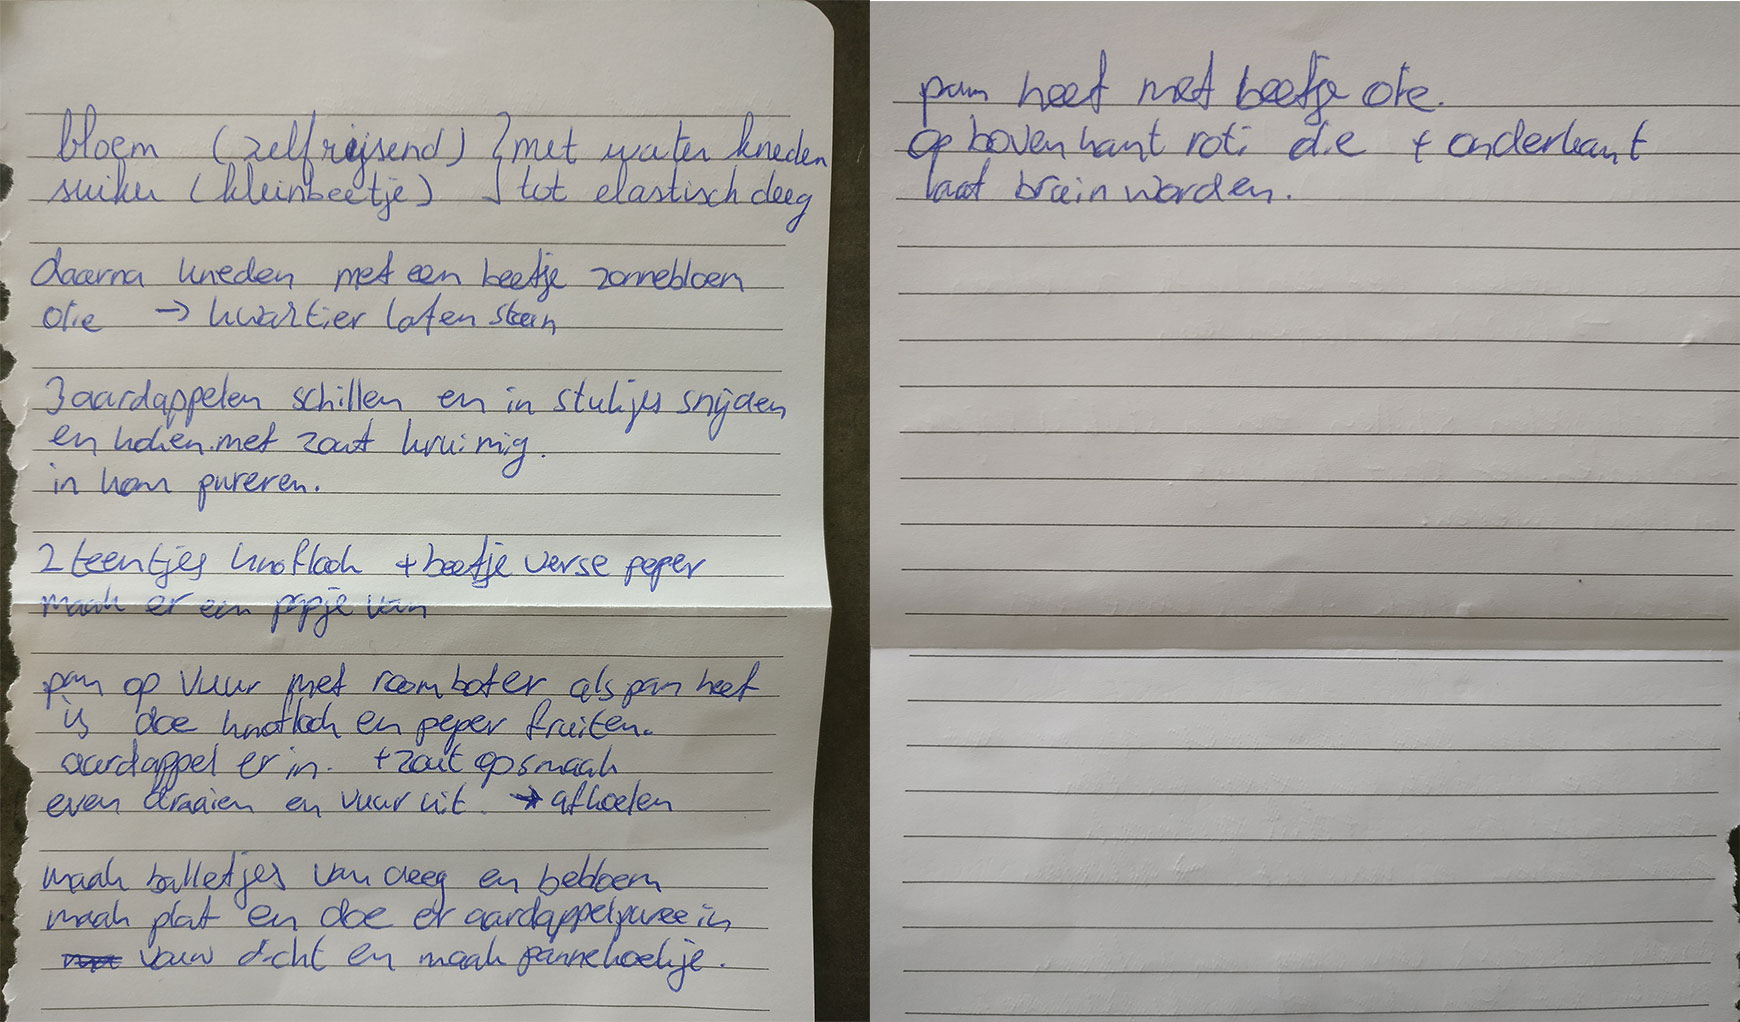 bloem (zelfrijsend) } met water kneden
suiker (kleinbeetje) } tot elastisch deeg
daarna kneden met een beetje zonnebloem
olie → kwartier laten staan
3 aardappelen schillen en in stukjes snijden
en koken met zout kruimig.
in kom pureren.
2 teentjes knoflook + beetje verse peper
maak er een papje van
pan op vuur met roomboter als pan heet
is doe knoflook en peper fruiten.
aardappel er in. + zout op smaak
even draaien en vuur uit. → afkoelen
maak balletjes van deeg en bebloem
maak plat en doe er aardappelpuree in
vouw dicht en maak pannekoekje.
pan heet met beetje olie.
op bovenkant roti olie + onderkant
laat bruin worden.